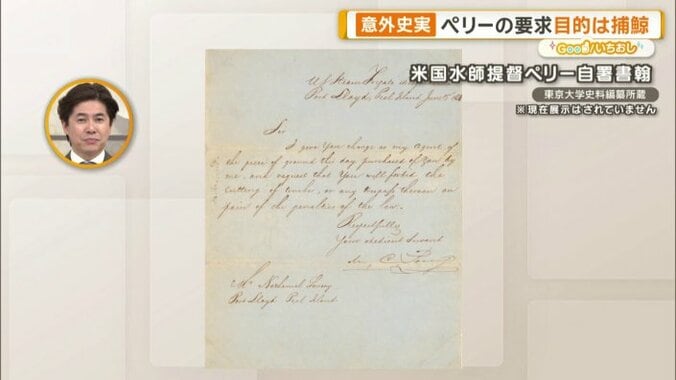 意外史実 ペリーの要求目的は捕鯨
Good!いちおし
米国水師提督ペリー自署書翰
東京大学史料編纂所蔵
※現在展示はされていません
U.S. Steam Frigate
Port Lloyd, Peel Island, June
Sir
I give you charge as my agent of
the piece of ground this day purchased of you by
me, and request that you will forbid the
cutting of timber, or any trespass thereon on
pain of the penalties of the law.
Respectfully
Your obedient Servant
M. C. Perry
Mr Nathaniel Savory
Port Lloyd Peel Island